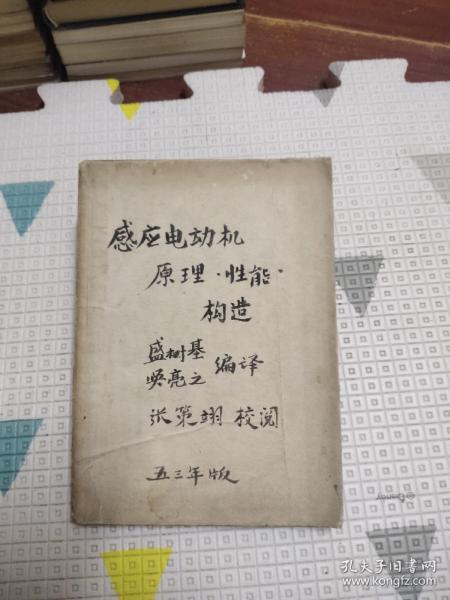 感应电动机
原理·性能·
构造
盛树基
吴亮之 编译
张策翊 校阅
五三年版
孔夫子旧书网
www.kongfz.com